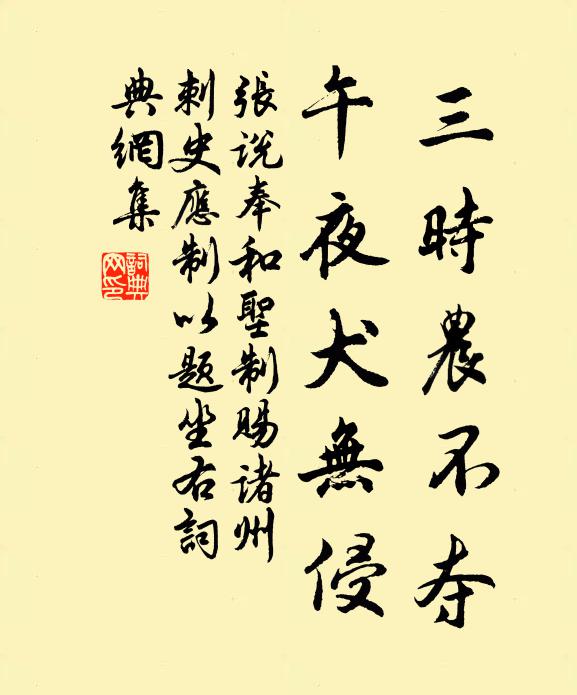 三時農不夺
午夜犬無侵
張説奉和聖制賜諸州
刺史應制以題坐右詞
典網集
詞典网印